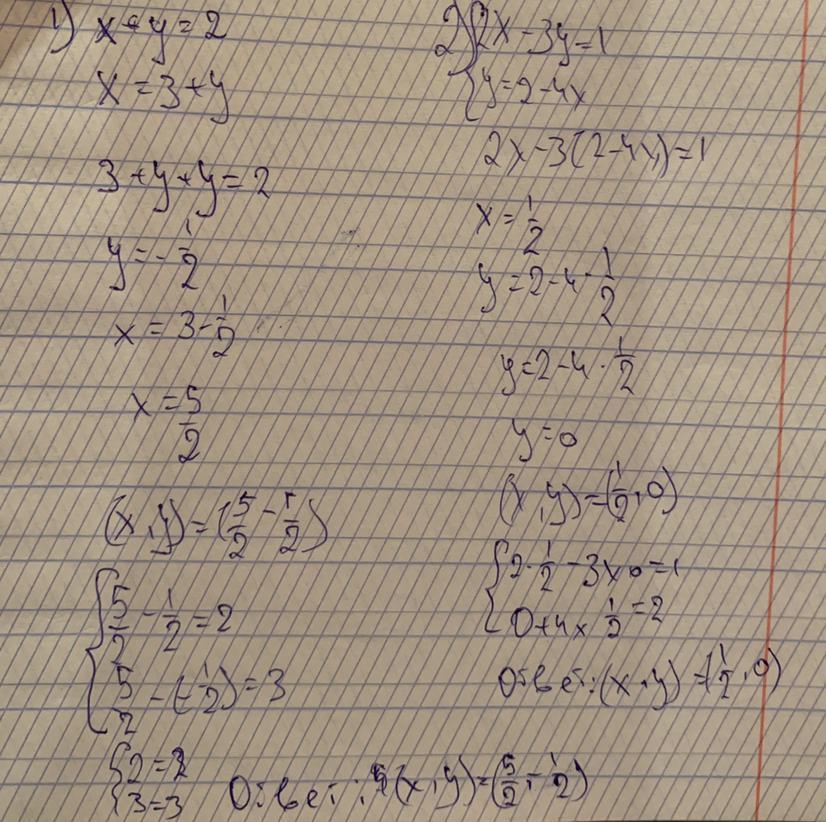 1) x+y=2
x=3+y
3+y+y=2
y=-1/2
x=3-1/2
x=5/2
(x,y)=(5/2-1/2)
{5/2-1/2=2
5/2-(-1/2)=3
{2=2
3=3
Ответ: (x,y)=(5/2,-1/2)
2) {2x-3y=1
y=2-4x
2x-3(2-4x)=1
x=1/2
y=2-4·1/2
y=2-4·1/2
y=0
(x,y)=(1/2,0)
{2·1/2-3x0=1
0+4x1/2=2
Ответ:(x,y)=(1/2,0)